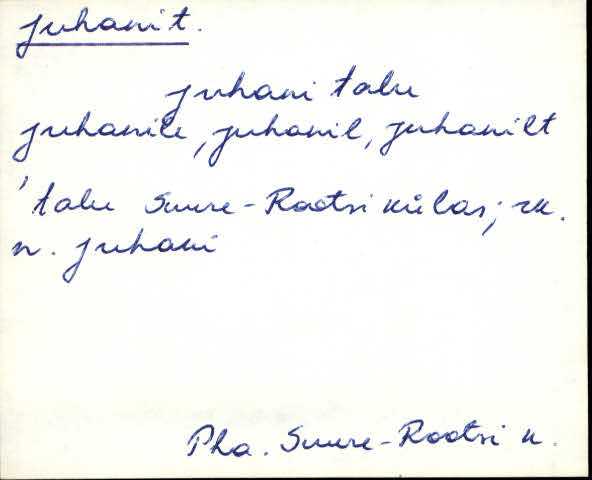 juhani t.
juhani talu
juhanile, juhanil, juhanilt
'talu Suure-Rootsi külas; rk.
n. juhani
Pha. Suure-Rootsi k.